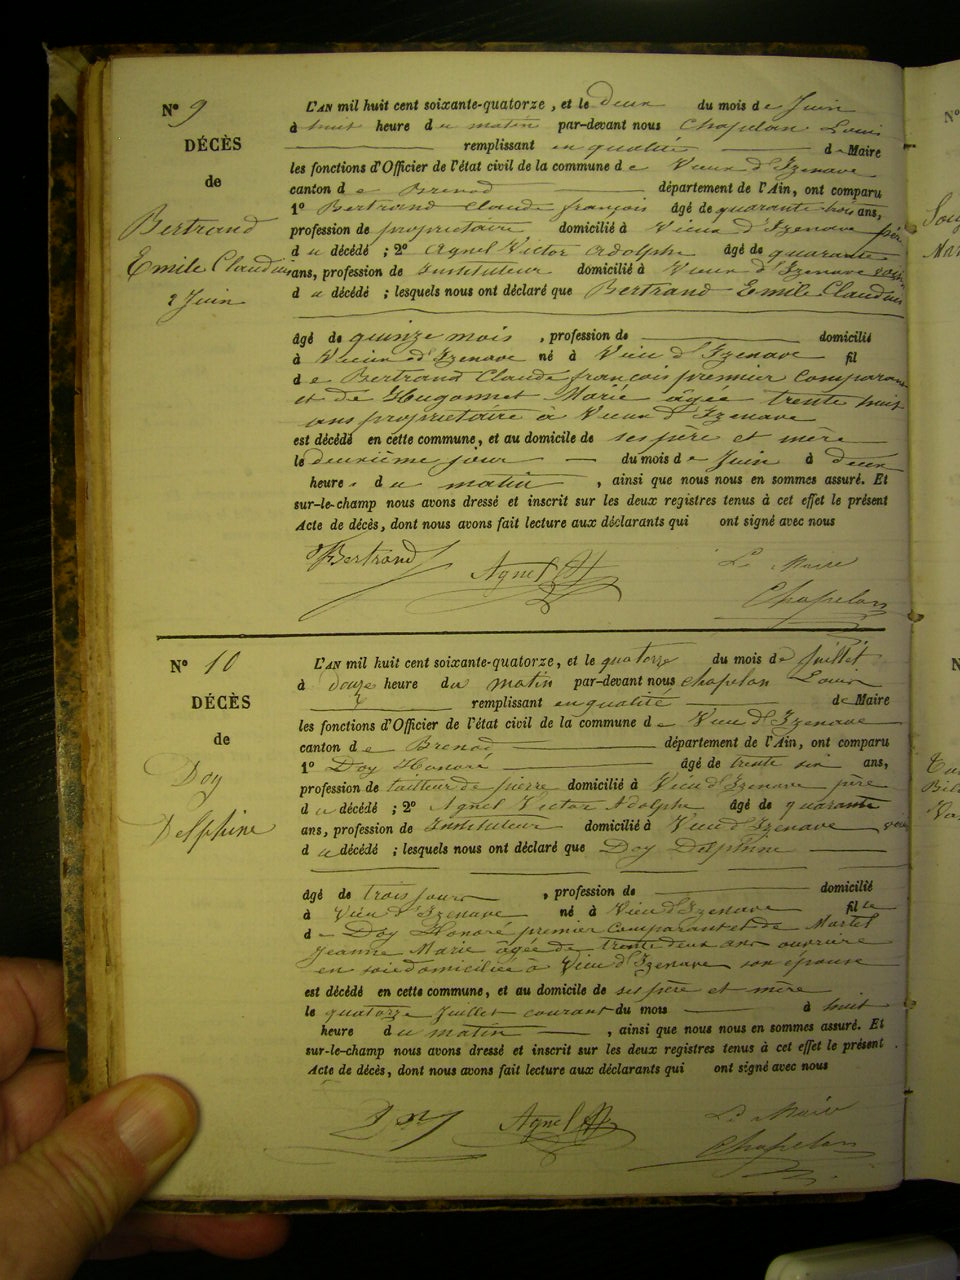 N° 9
DÉCÈS
de
Bertrand
Emile Claudius
2 Juin
L'AN mil huit cent soixante-quatorze, et le Deux du mois de Juin
à huit heure du matin par-devant nous Chapelan Louis
remplissant en qualité de Maire
les fonctions d'Officier de l'état civil de la commune de Vieux d'Izenave
canton de Brenod département de l'Ain, ont comparu
1° Bertrand Claude françois âgé de quarante trois ans,
profession de propriétaire domicilié à Vieux d'Izenave père
du décédé ; 2° Agnel Victor Adolphe âgé de quarante
ans, profession de Instituteur domicilié à Vieux d'Izenave voisin
du décédé ; lesquels nous ont déclaré que Bertrand Emile Claudius
âgé de quinze mois , profession de domicilié
à Vieux d'Izenave né à Vieu d'Izenave fil
de Bertrand Claude françois premier comparant
et de Hugonnet Marie âgée trente huit
ans propriétaire à Vieux d'Izenave
est décédé en cette commune, et au domicile de ses père et mère
le deuxième jour du mois de Juin à deux
heure. du matin , ainsi que nous nous en sommes assuré. Et
sur-le-champ nous avons dressé et inscrit sur les deux registres tenus à cet effet le présent
Acte de décès, dont nous avons fait lecture aux déclarants qui ont signé avec nous
Bertrand Agnel Le Maire
Chapelan
N° 10
DÉCÈS
de
Doy
Delphine
L'AN mil huit cent soixante-quatorze, et le quatorze du mois de Juillet
à douze heure du matin par-devant nous Chapelan Louis
remplissant en qualité de Maire
les fonctions d'Officier de l'état civil de la commune de Vieu d'Izenave
canton de Brenod département de l'Ain, ont comparu
1° Doy Honoré âgé de trente six ans,
profession de tailleur de pierre domicilié à Vieu d'Izenave père
du décédé ; 2° Agnel Victor Adolphe âgé de quarante
ans, profession de Instituteur domicilié à Vieu d'Izenave
du décédé ; lesquels nous ont déclaré que Doy Delphine
âgé de trois jours , profession de domicilié
à Vieu d'Izenave né à Vieu d'Izenave fille
de Doy Honoré premier comparant et de Martel
Jeanne Marie âgée de trente deux ans ouvrière
en soie domiciliée à Vieu d'Izenave son épouse
est décédé en cette commune, et au domicile de ses père et mère
le quatorze Juillet courant du mois à huit
heure du matin , ainsi que nous nous en sommes assuré. Et
sur-le-champ nous avons dressé et inscrit sur les deux registres tenus à cet effet le présent
Acte de décès, dont nous avons fait lecture aux déclarants qui ont signé avec nous
Doy Agnel Le Maire
Chapelan